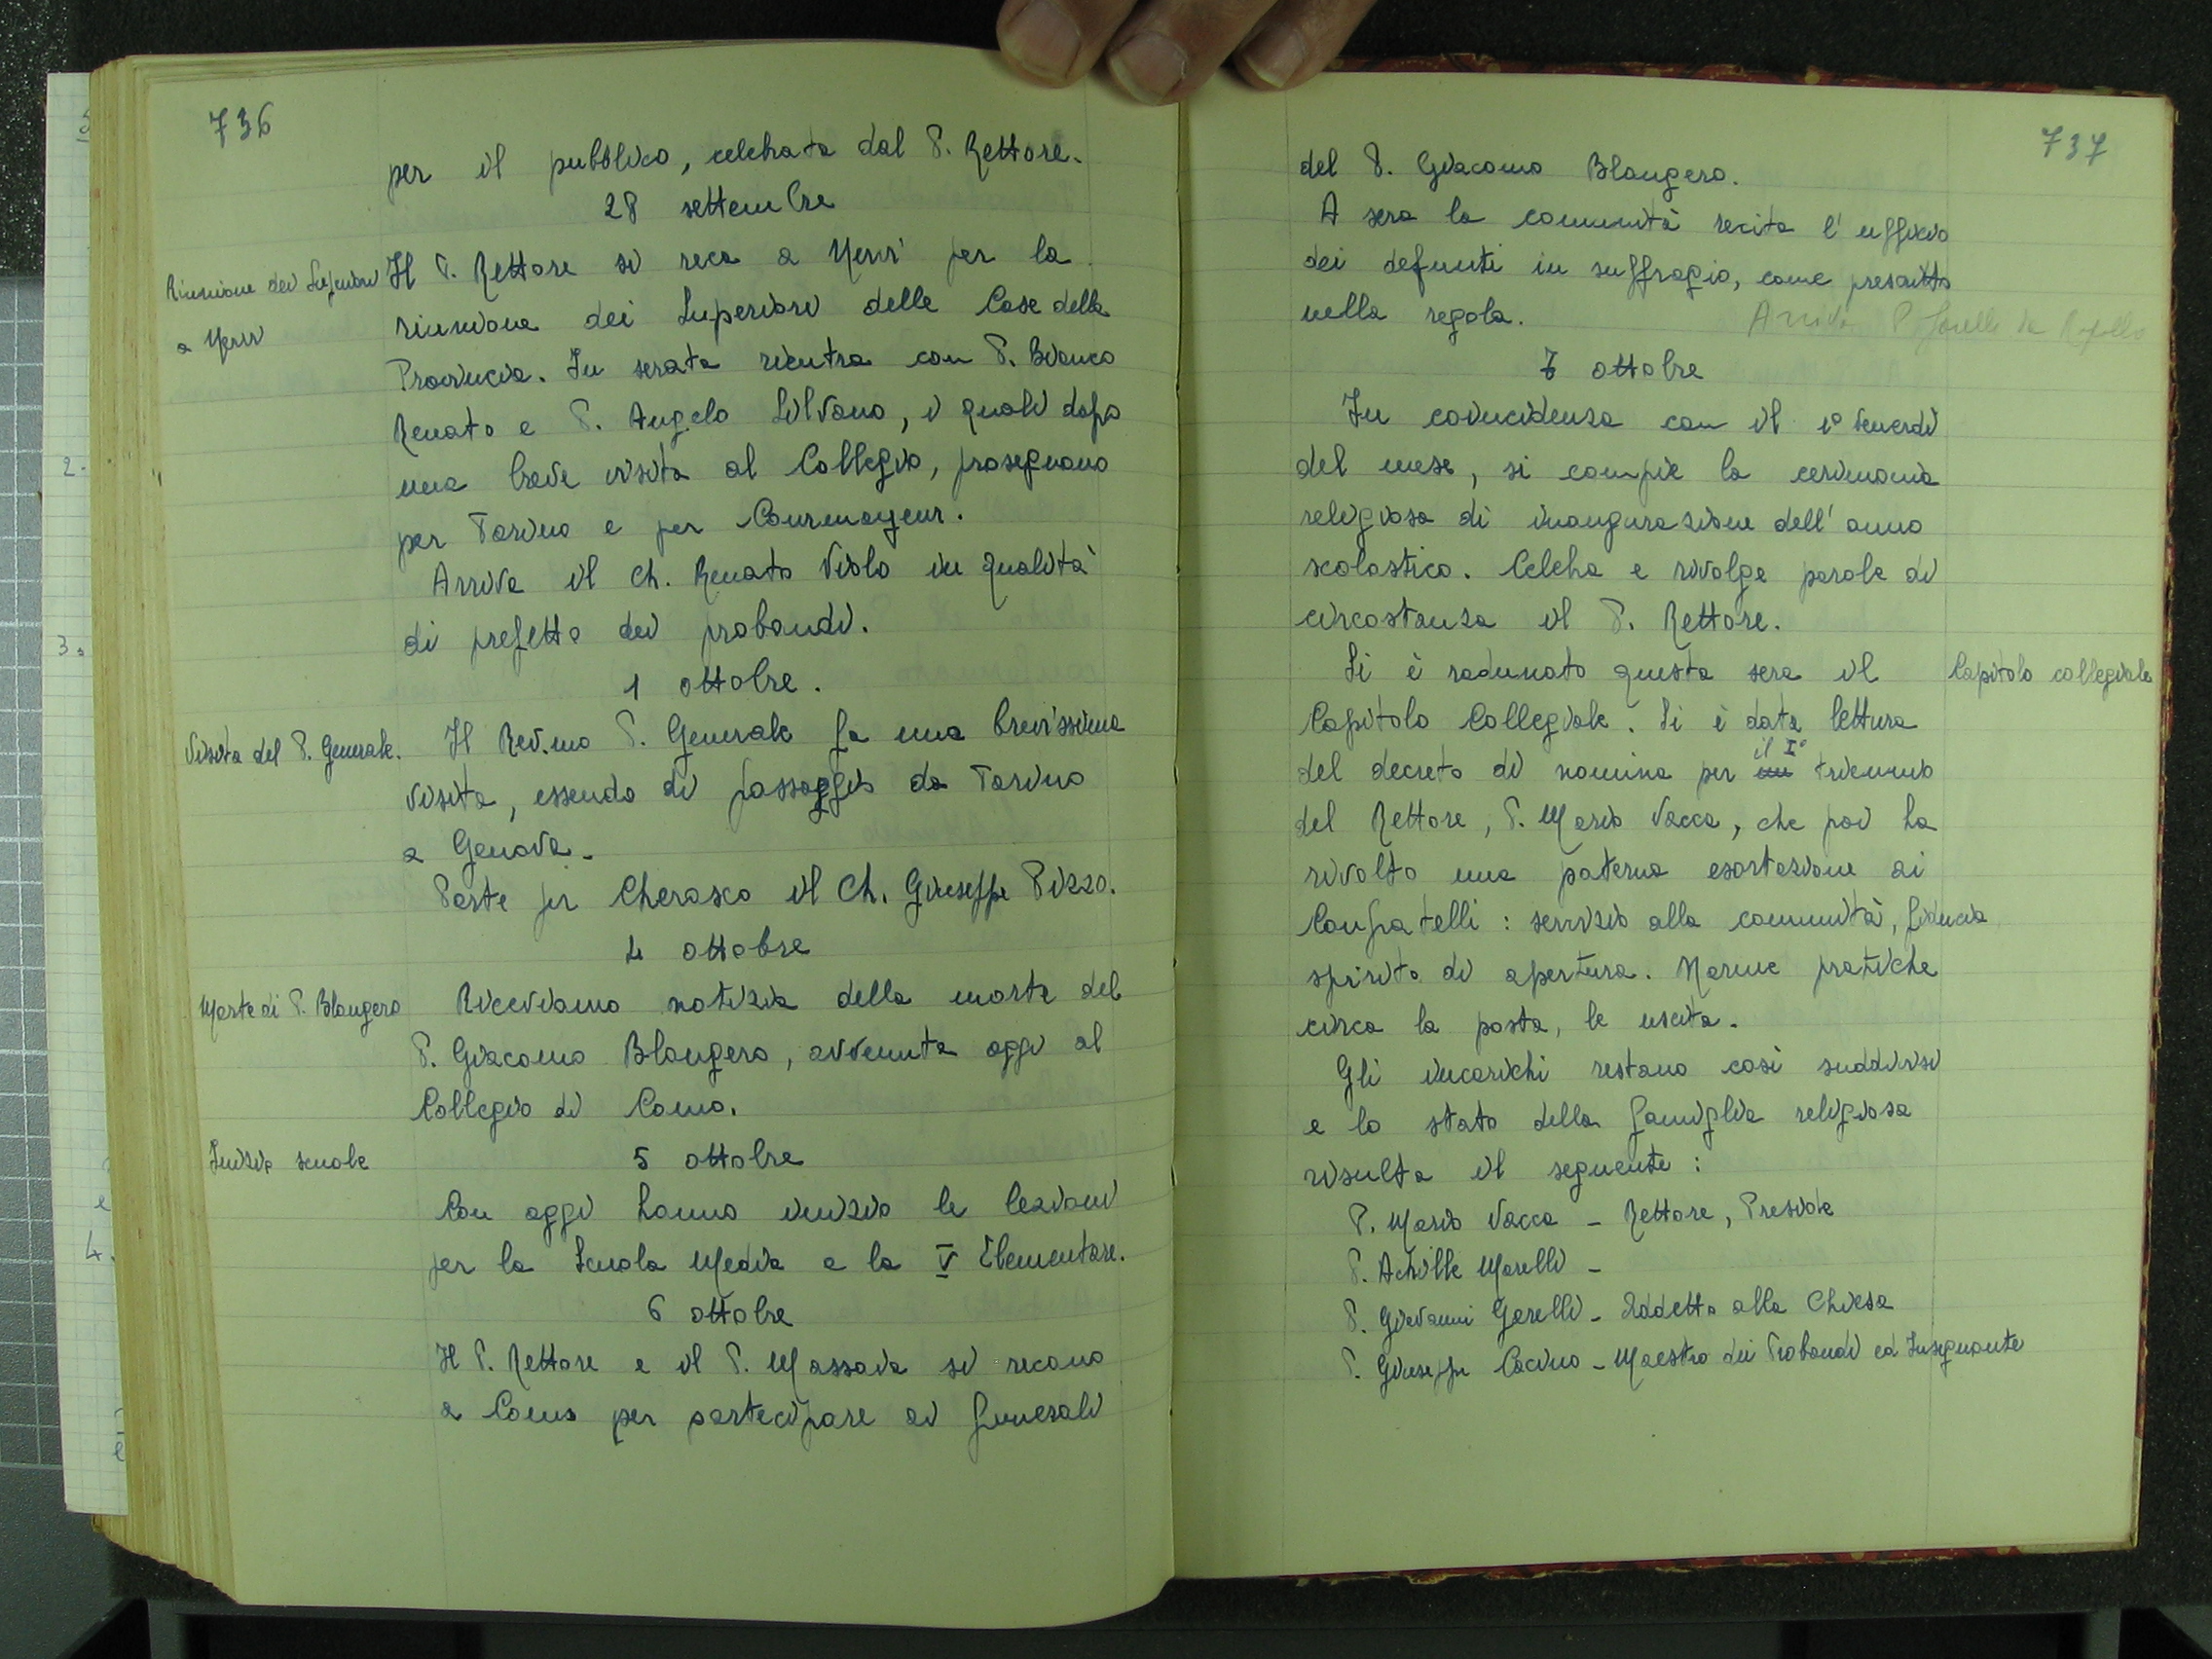 736
per il pubblico, celebrata dal P. Rettore.
28 settembre
Riunione dei Superiori
a Nervi
Il P. Rettore si reca a Nervi per la
riunione dei Superiori delle Case della
Provincia. In serata rientra con P. Bianco
Renato e P. Angelo Silvano, i quali dopo
una breve visita al Collegio, proseguono
per Torino e per Courmayeur.
Arriva il Ch. Renato Viola in qualità
di prefetto dei probandi.
1 ottobre.
Visita del P. Generale.
Il Rev.mo P. Generale fa una brevissima
visita, essendo di passaggio da Torino
a Genova.
Parte per Cherasco il Ch. Giuseppe Pizzo.
4 ottobre
Morte di P. Blangero
Riceviamo notizia della morte del
P. Giacomo Blangero, avvenuta oggi al
Collegio di Como.
Inizio scuole
5 ottobre
Con oggi hanno inizio le lezioni
per la Scuola Media e la V Elementare.
6 ottobre
Il P. Rettore e il P. Massaia si recano
a Como per partecipare ai funerali
737
del P. Giacomo Blangero.
A sera la comunità recita l'ufficio
dei defunti in suffragio, come prescritto
nella regola.
Arriva P. da Rapallo
7 ottobre
In coincidenza con il 1° venerdì
del mese, si compie la cerimonia
religiosa di inaugurazione dell'anno
scolastico. Celebra e rivolge parole di
circostanza il P. Rettore.
Si è radunato questa sera il
Capitolo collegiale
Capitolo Collegiale. Si è data lettura
del decreto di nomina per il I° triennio
del Rettore, P. Mario Vacca, che poi ha
rivolto una paterna esortazione ai
Confratelli: servizio alla comunità, fiducia
spirito di apertura. Norme pratiche
circa la posta, le uscite.
Gli incarichi restano così suddivisi
e lo stato della famiglia religiosa
risulta il seguente:
P. Mario Vacca - Rettore, Preside
P. Achille Marelli -
P. Giovanni Garelli - Addetto alla Chiesa
P. Giuseppe Cocino - Maestro dei Probandi ed Insegnante
2.
3.
4.